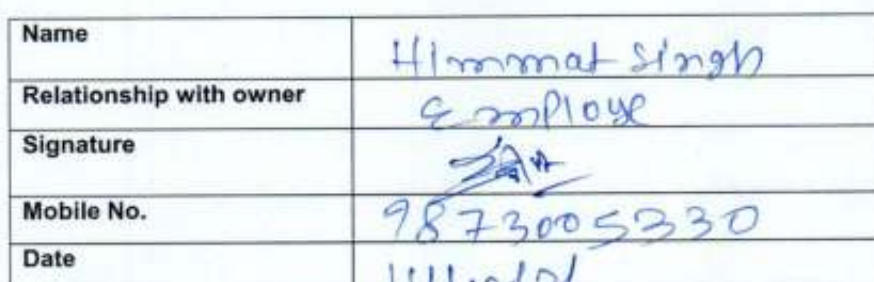 Name Himmat Singh
Relationship with owner Employe
Signature
Mobile No. 9873005330
Date